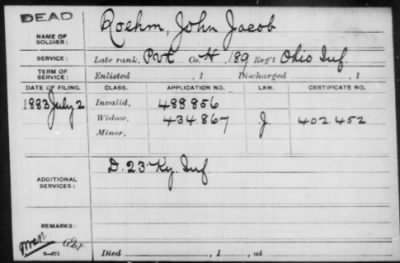 DEAD
NAME OF SOLDIER: Roehm, John Jacob
SERVICE: Late rank, Pvt Co. H, 189 Reg't Ohio Inf.
TERM OF SERVICE: Enlisted , 1 Discharged , 1
DATE OF FILING. CLASS. APPLICATION NO. LAW. CERTIFICATE NO.
1883 July 2 Invalid, 488856
Widow, 434867 J 402452
Minor,
ADDITIONAL SERVICES: D. 23 Ky. Inf.
REMARKS:
Died , 1 , at